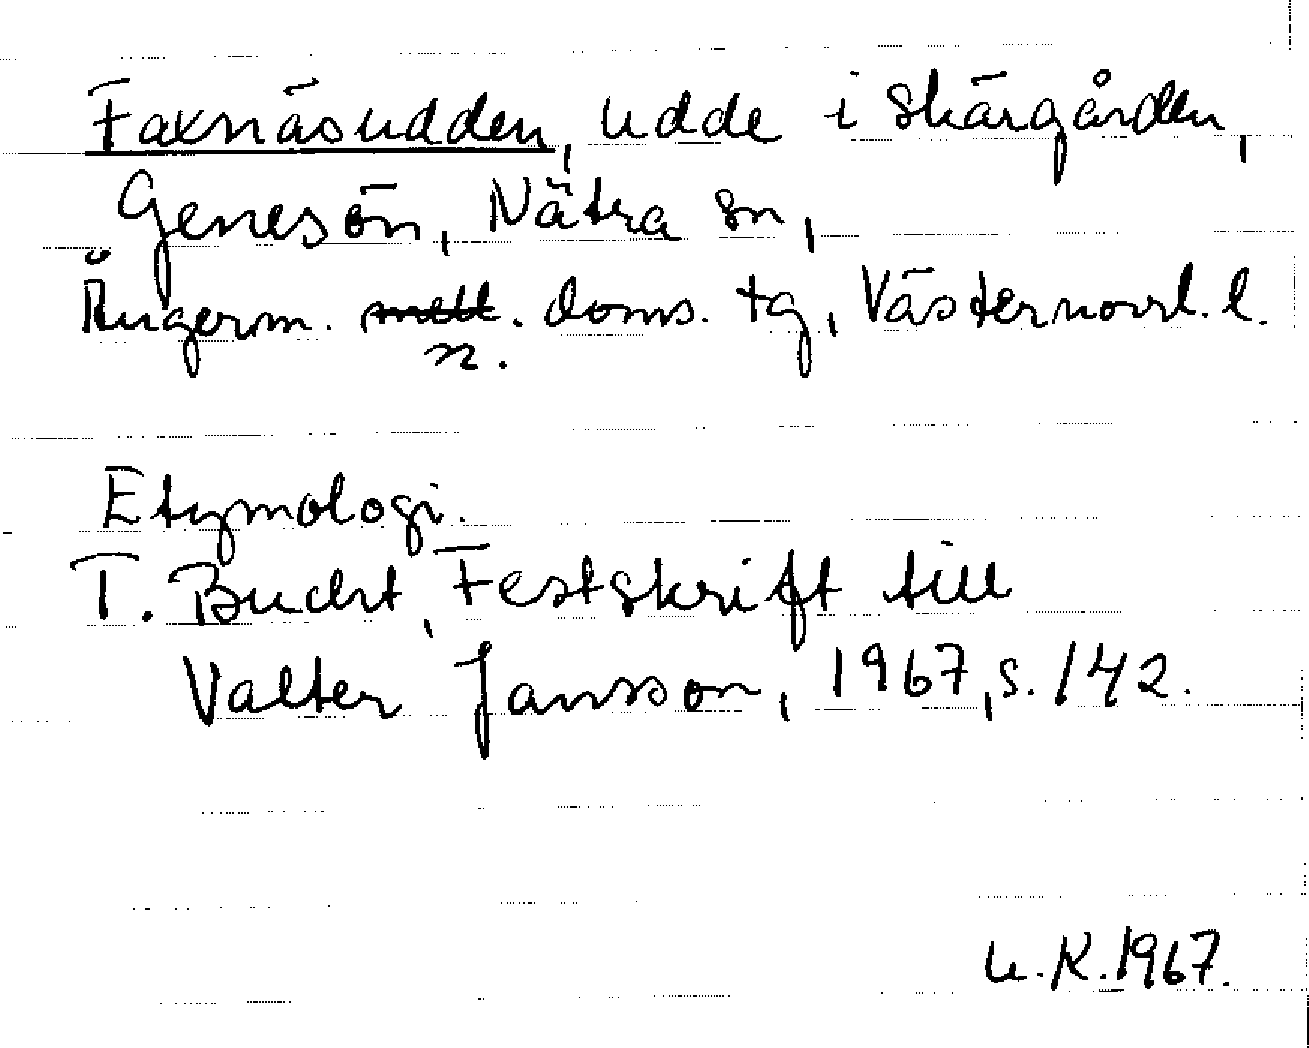 Faxnäsudden, udde i skärgården,
Genesön, Nätra sn,
Ångerm. mell. doms. tg, Västernorrl. l.
n.
Etymologi.
T. Bucht, Festskrift till
Valter Jansson, 1967, s. 142.
U.K. 1967.